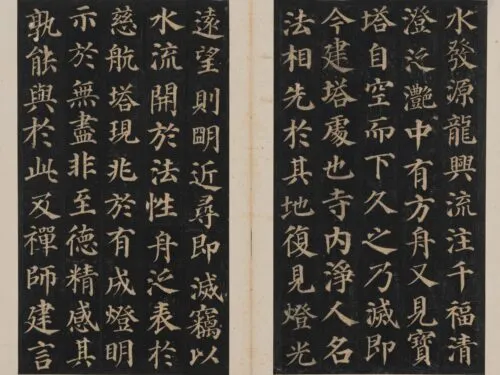 水發源龍興流注千福清
澄泛灩中有方舟又見寶
塔自空而下久之乃滅即
今建塔處也寺內淨人名
法相先於其地復見燈光
遠望則朙近尋即滅竊以
水流開於法性舟泛表於
慈航塔現兆於有成燈明
示於無盡非至德精感其
孰能與於此及禪師建言